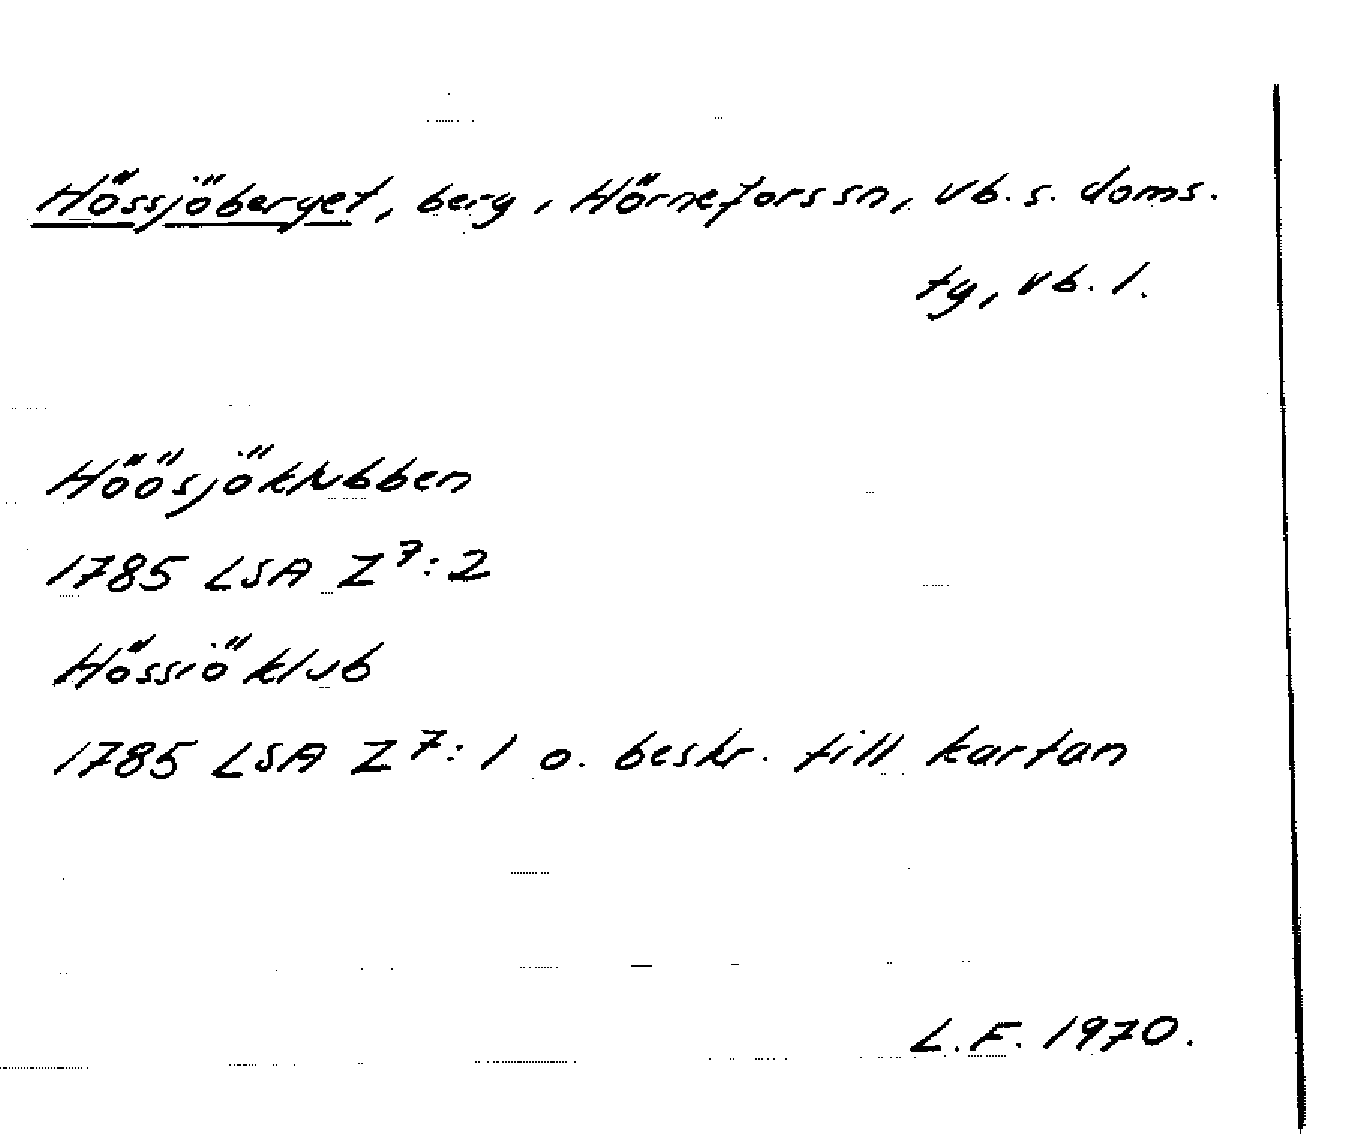 Hössjöberget, berg, Hörnefors sn, Vb. s. doms.
tg, Vb. l.
Höösjöklubben
1785 LSA Z7:2
Hössiö klub
1785 LSA Z7:1 o. beskr. till kartan
L.F. 1970.